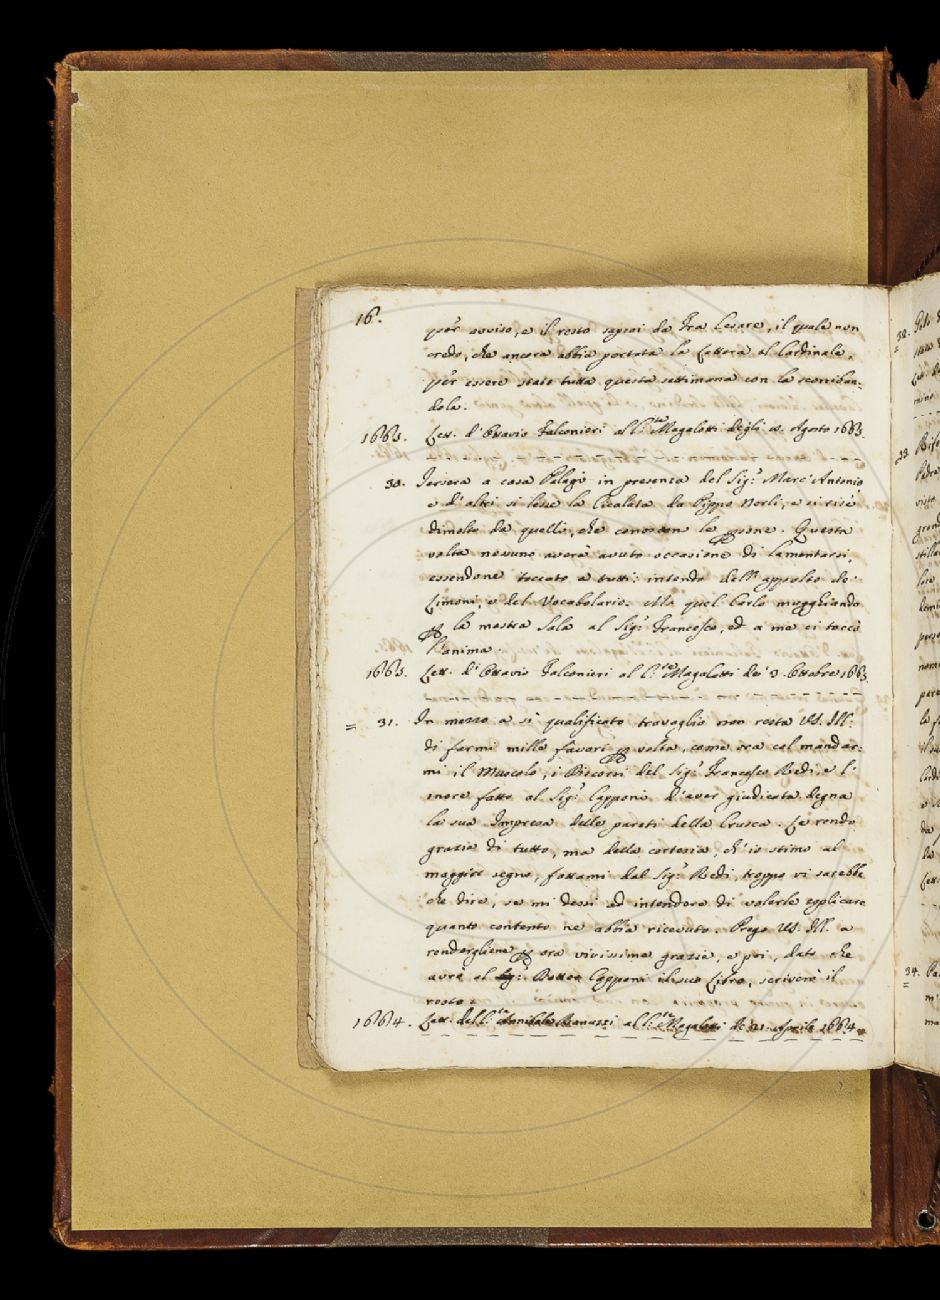 16.
per avviso, e il resto saprai da Fra Cesare, il quale non
credo, che ancora abbia portata la lettera al Cardinale,
per essere stato tutta questa settimana con la
dola.
1663. Lett. d'Ottavio Falconieri al C.te Magalotti degli Agosto 1663.
30. Iersera a casa Pelagi in presenza del Sig.r Marc'Antonio
e d'altri si lesse la Cicalata da Pippo Nerli, e si rise
dimolto da quelli, che conoscon le psone. Questa
volta nessuno averà avuto occasione di lamentarsi,
essendone toccato a tutti: intendo dell' de'
Simoni, e del Vocabolario. Ma quel Carlo mugghiando
p la mostra Sala al Sig.r Francesco, ed a me ci toccò
l'anima.
1663. Lett. d'Ottavio Falconieri al C.te Magalotti de' 3. Ottobre 1663.
= 31. In mezzo a sì qualificato travaglio non resta VS. Ill.
di farmi mille favori p volta, come ora col mandar-
mi il Muscolo, i Riscorsi del Sig.r Francesco Redi, e l'
fatto al Sig.r Capponi d'aver giudicata degna
la sua Impresa delle pareti della Crusca. Le rendo
grazie di tutto, ma della cortesia, ch'io stimo al
maggior segno, fattami dal Sig.r Redi, troppo vi sarebbe
che dire, se mi dessi ad intendere di volerle esplicare
quanto contento ne abbia ricevuto. Prego VS. Ill. a
rendergliene p ora vivissime grazie, e poi, dato che
avrà al Capponi il suo Libro, scriverò il
resto.
1664. Lett. dell' Annibale Ranuzzi al C.te Magalotti de' 21. Aprile 1664.
32.
33.
34.